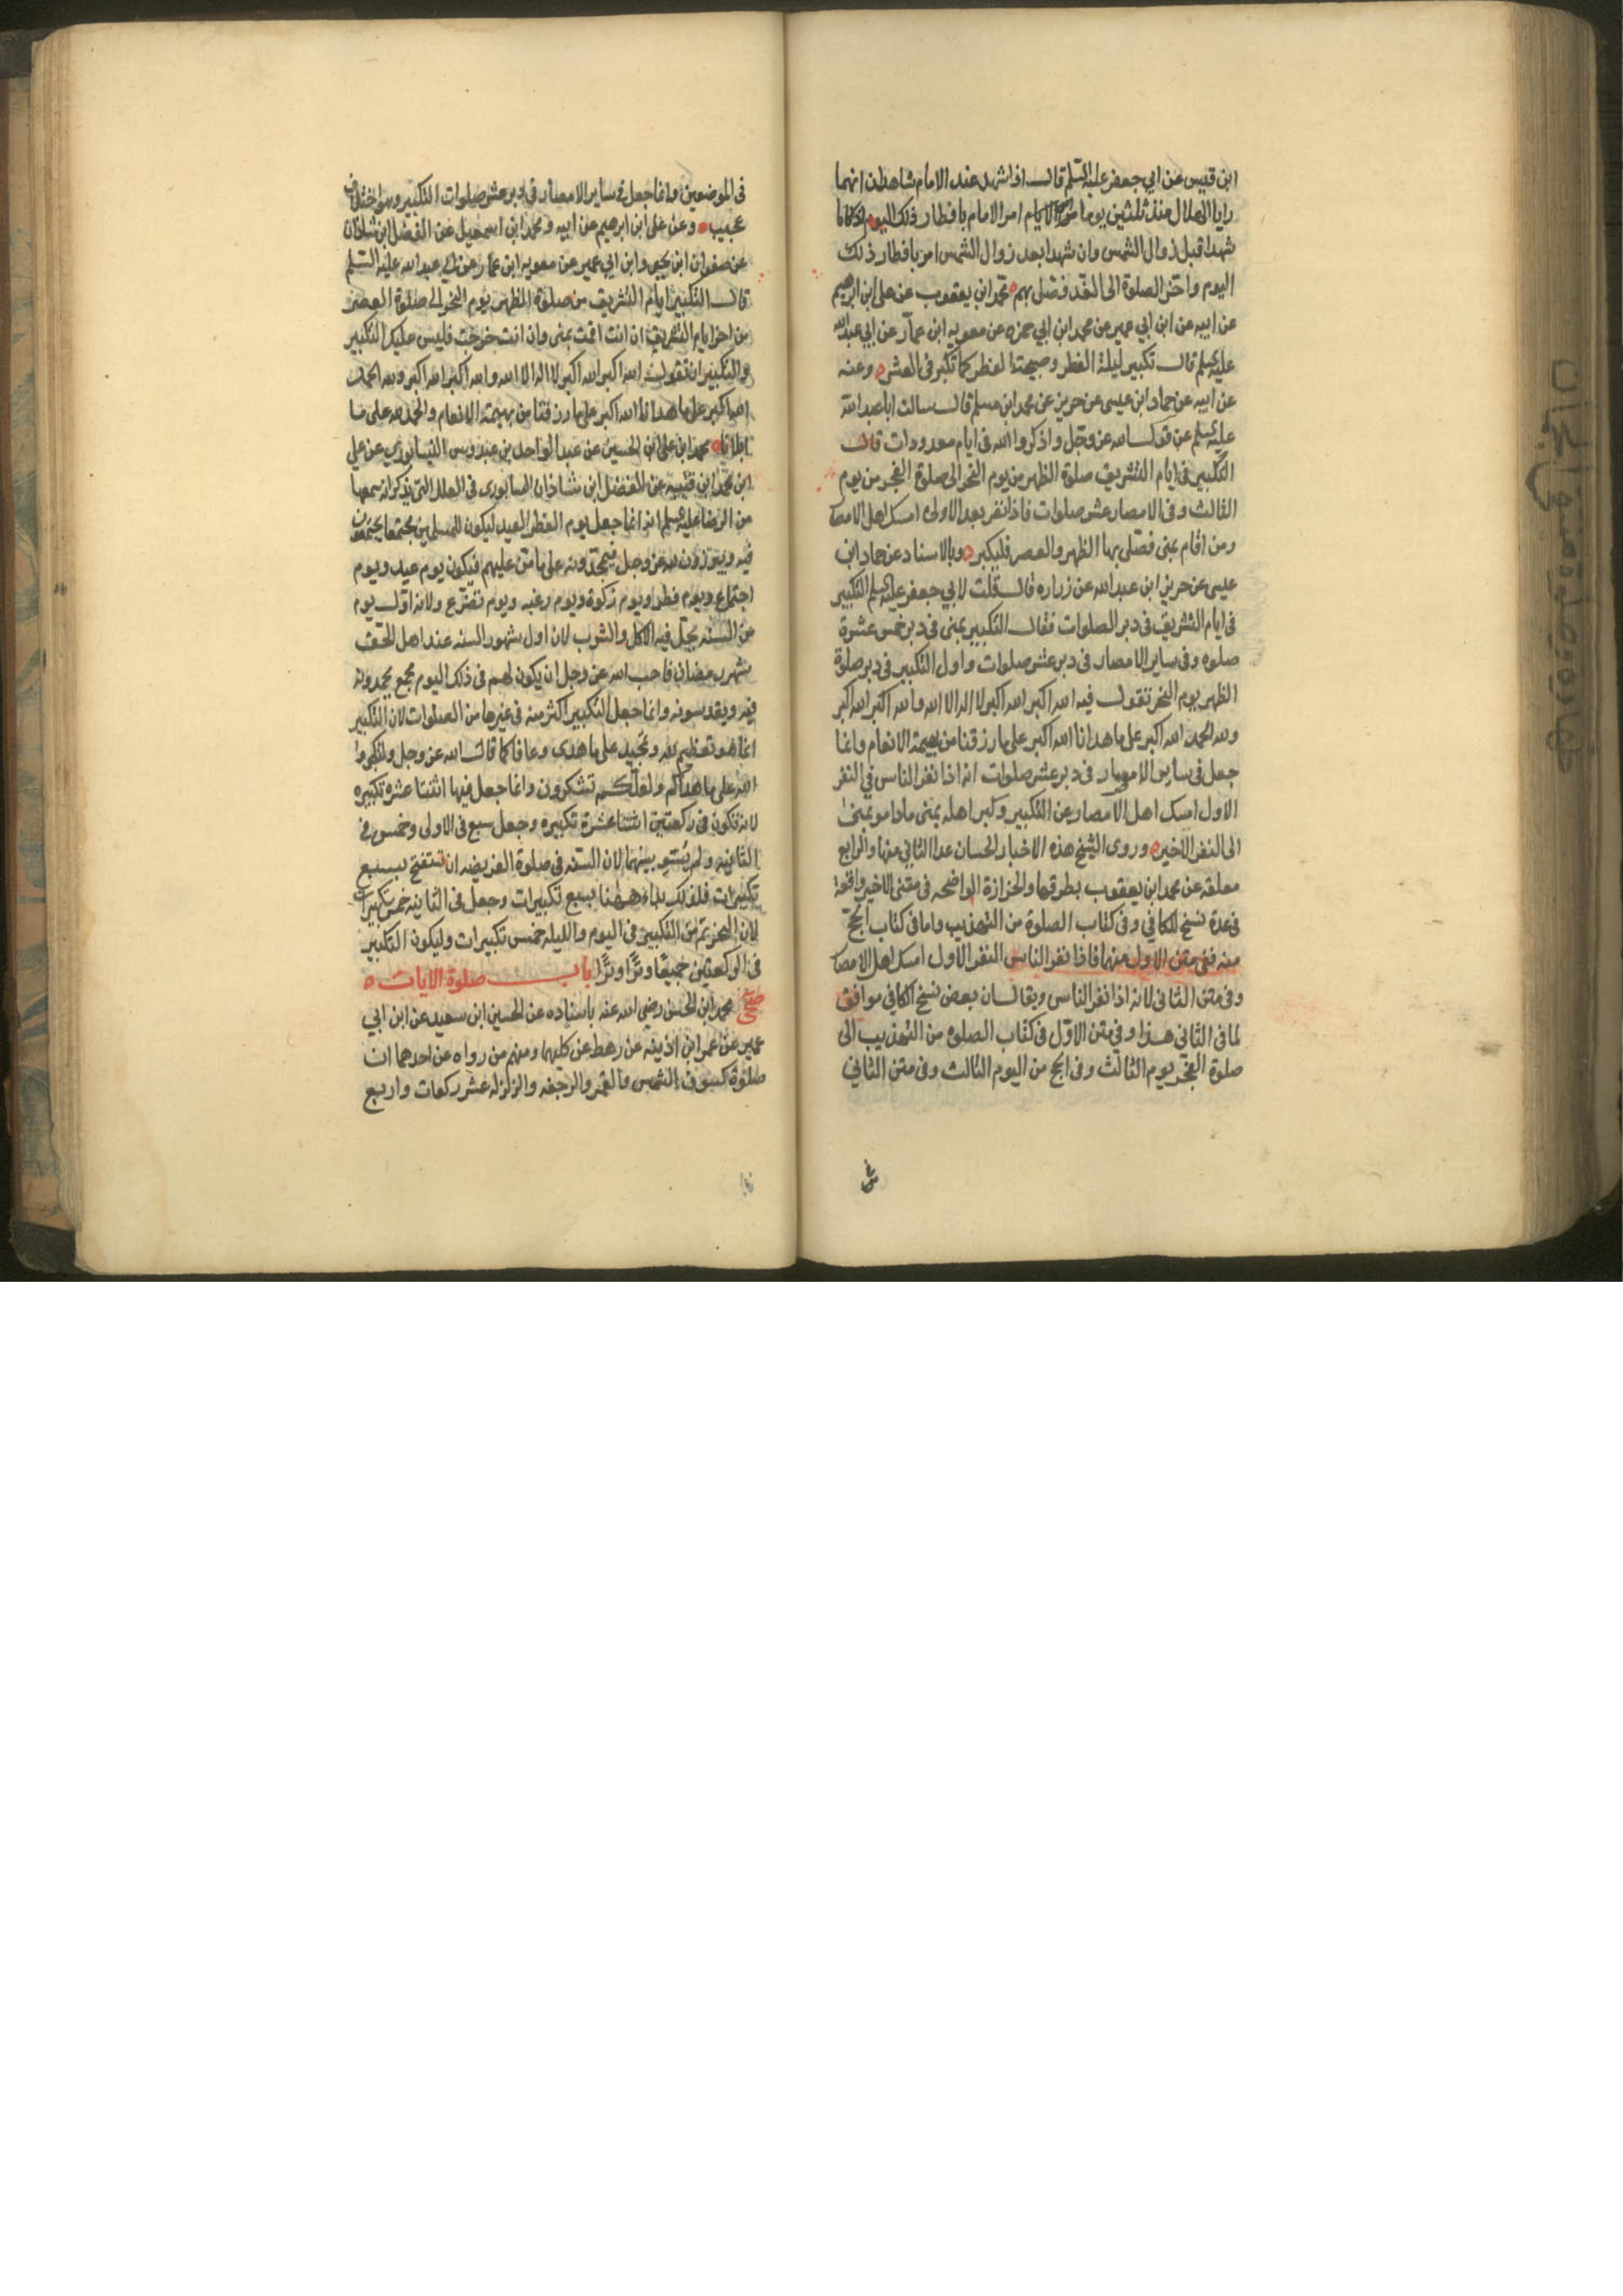 ابن قيس عن ابي جعفر عليه السلم قال اذا شهد عند الامام شاهدان انهما
رايا الهلال منذ ثلثين يوما امر الامام بافطار ذلك اليوم اذا كانا
شهدا قبل زوال الشمس وان شهدا بعد زوال الشمس امر بافطار ذلك
اليوم واخر الصلوة الى الغد فصلى بهم محمد ابن يعقوب عن على ابن ابرهيم
عن ابيه عن ابن ابي عمير عن محمد ابن ابي حمزه عن معويه ابن عمار عن ابي عبدالله
عليه السلم قال تكبير ليلة الفطر وصبيحة الفطر كما تكبر فى العشر وعنه
عن ابيه عن حماد ابن عيسى عن حريز عن محمد ابن مسلم قال سالت ابا عبدالله
عليه السلم عن قول الله عز وجل واذكروا الله فى ايام معدودات قال
التكبير فى ايام التشريق صلوة الظهر من يوم النحر الى صلوة الفجر من يوم
الثالث وفى الامصار عشر صلوات فاذا نفر بعد الاولى امسك اهل الامصار
ومن اقام بمنى فصلى بها الظهر والعصر فليكبر وبالاسناد عن حماد ابن
عيسى عن حريز ابن عبدالله عن زراره قال قلت لابي جعفر عليه السلم التكبير
فى ايام التشريق فى دبر الصلوات فقال التكبير بمنى فى دبر خمس عشرة
صلوه وفى ساير الامصار فى دبر عشر صلوات واول التكبير فى دبر صلوة
الظهر يوم النحر تقول فيه الله اكبر الله اكبر لا اله الا الله والله اكبر الله اكبر
ولله الحمد الله اكبر على ما هدانا الله اكبر على ما رزقنا من بهيمة الانعام وانما
جعل فى ساير الامصار فى دبر عشر صلوات انه اذا نفر الناس في النفر
الاول امسك اهل الامصار عن التكبير وكبر اهل منى ماداموا بمنى
الى النفر الاخير وروى الشيخ هذه الاخبار الحسان عدا الثاني منها والرابع
معلقه عن محمد ابن يعقوب بطرقها والحزازة الواضحه فى متنى الاخير واقعة
فى عدة نسخ للكافي وفى كتاب الصلوة من التهذيب واما فى كتاب الحج
منه ففى متن الاول منهما فاذا نفر الناس النفر الاول امسك اهل الامصار
وفى متن الثانى لانه اذا نفر الناس ويقال ان بعض نسخ الكافي موافق
لما فى الثاني هذا وفى متن الاول فى كتاب الصلوه من التهذيب الى
صلوة الفجر يوم الثالث وفى الحج من اليوم الثالث وفى متن الثاني
فى الموضعين وانما جعل فى ساير الامصار فى دبر عشر صلوات التكبير وهو اختلاف
عجيب وعن على ابن ابرهيم عن ابيه ومحمد ابن اسمعيل عن الفضل ابن شاذان
عن صفوان ابن يحيى وابن ابي عمير عن معويه ابن عمار عن ابي عبد الله عليه السلم
قال التكبير ايام التشريق من صلوة الظهر يوم النحر الى صلوة العصر
من اخر ايام التشريق ان انت اقمت بمنى وان انت خرجت فليس عليك التكبير
والتكبير ان تقول الله اكبر الله اكبر لا اله الا الله والله اكبر الله اكبر ولله الحمد
الله اكبر على ما هدانا الله اكبر على ما رزقنا من بهيمة الانعام والحمد لله على ما
ابلانا محمد ابن على ابن الحسين عن عبد الواحد بن عبدوس النيسابوري عن علي
ابن محمد ابن قتيبه عن الفضل ابن شاذان النيسابورى فى العلل التى يذكر انه سمعها
من الرضا عليه السلم انه انما جعل يوم الفطر العيد ليكون للمسلمين مجتمعا يجتمعون
فيه ويبرزون لله عز وجل فيحمدونه على ما من عليهم فيكون يوم عيد ويوم
اجتماع ويوم فطر ويوم زكوة ويوم رغبه ويوم تضرع ولانه اول يوم
من السنه يحل فيه الاكل والشرب لان اول شهور السنه عند اهل الحق
شهر رمضان فاحب الله عز وجل ان يكون لهم فى ذلك اليوم مجمع يحمدونه
فيه ويقدسونه وانما جعل التكبير اكثر منه فى غيرها من الصلوات لان التكبير
انما هو تعظيم لله وتمجيد على ما هدى وعافا كما قال الله عز وجل ولتكبروا
الله على ما هداكم ولعلكم تشكرون وانما جعل فيها اثنتا عشره تكبيره
لانه تكون فى ركعتين اثنتا عشرة تكبيره وجعل سبع فى الاولى وخمس فى
الثانيه ولم يسو بينهما لان السنه فى صلوة الفريضه ان تستفتح بسبع
تكبيرات فلذلك بداء ههنا بسبع تكبيرات وجعل فى الثانيه خمس تكبيرات
لان التحريم من التكبير فى اليوم والليله خمس تكبيرات وليكون التكبير
فى الركعتين جميعًا وترًا وترًا باب صلوة الايات
صحى محمد ابن الحسن رضي الله عنه باسناده عن الحسين ابن سعيد عن ابن ابي
عمير عن عمر ابن اذينه عن رهط عن كليهما ومنهم من رواه عن احدهما ان
صلوة كسوف الشمس والقمر والرجفه والزلزله عشر ركعات واربع